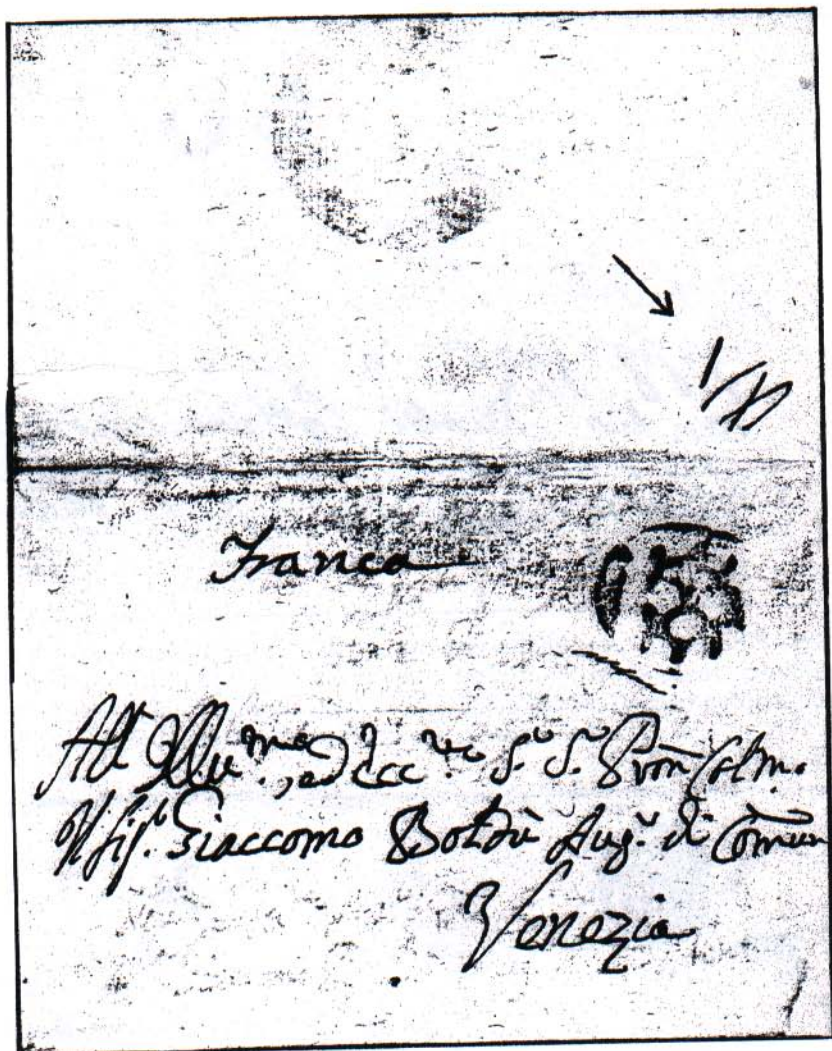 Franca
All' Illu.mo, ed Ecc.mo S.r S.r Pron Col.mo
Il Sig.r Giaccomo Boldù Aug.r di Comun
Venezia